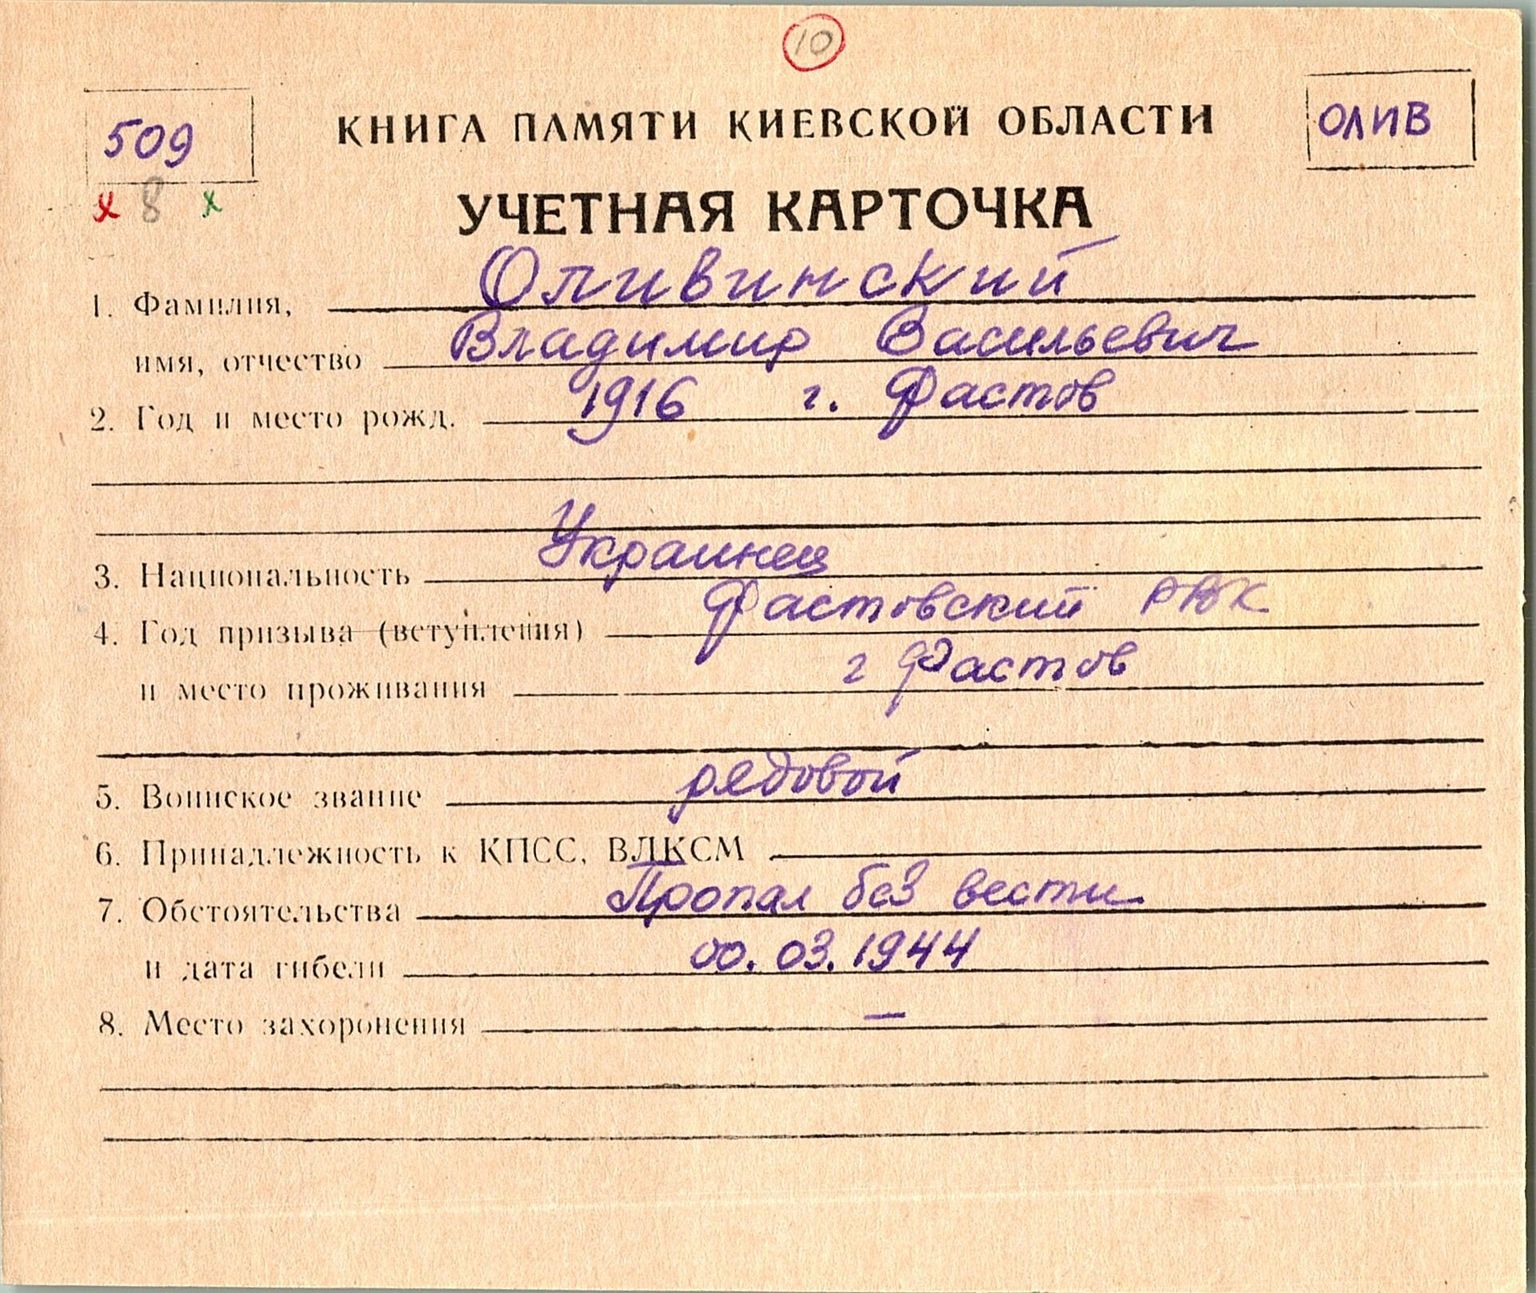 10
509
КНИГА ПАМЯТИ КИЕВСКОЙ ОБЛАСТИ
ОЛИВ
х 8 х
УЧЕТНАЯ КАРТОЧКА
1. Фамилия, Оливинский
имя, отчество Владимир Васильевич
2. Год и место рожд. 1916 г. Фастов
3. Национальность Украинец
4. Год призыва (вступления) Фастовский РВК
и место проживания г Фастов
5. Воинское звание рядовой
6. Принадлежность к КПСС, ВЛКСМ
7. Обстоятельства Пропал без вести
и дата гибели 00.03.1944
8. Место захоронения —